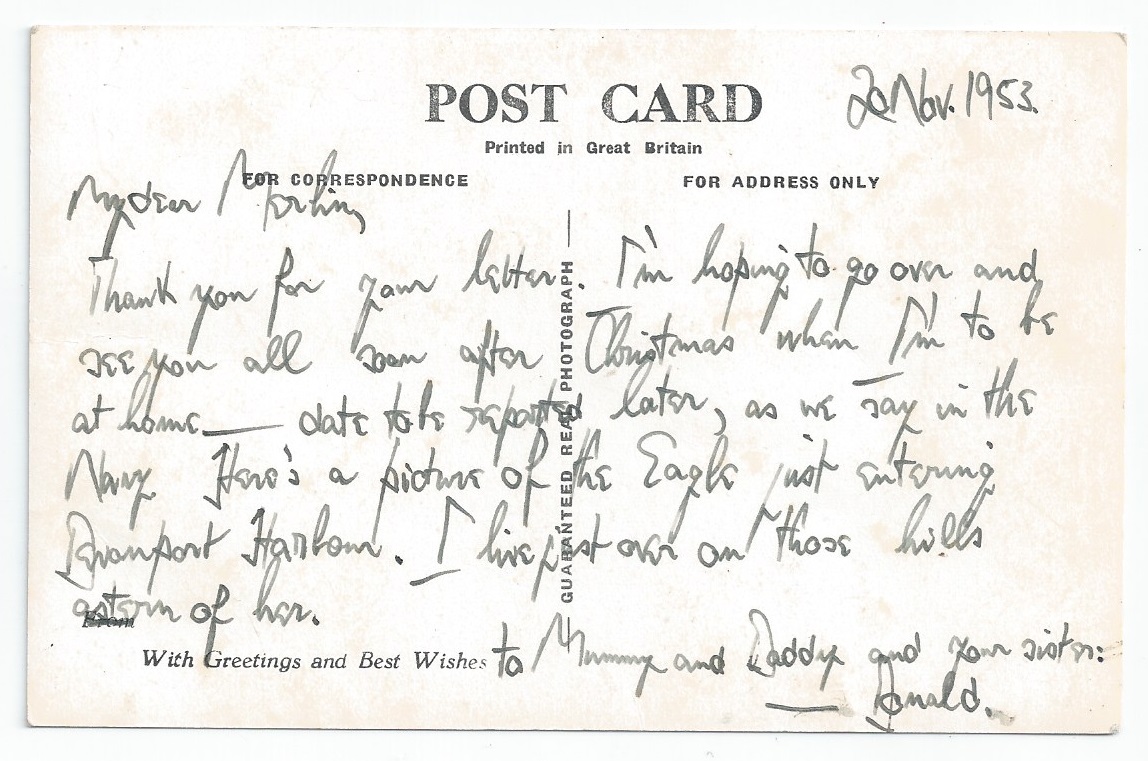 POST CARD
20 Nov. 1953.
Printed in Great Britain
FOR CORRESPONDENCE
FOR ADDRESS ONLY
My dear
Thank you for your letter. I'm hoping to go over and
see you all soon after Christmas when I'm to be
at home — date to be reported later, as we say in the
Navy. Here's a picture of the Eagle just entering
Devonport Harbour. I live just over on those hills
astern of her.
From
With Greetings and Best Wishes to Mummy and Daddy and your sister:
— Donald.
GUARANTEED REAL PHOTOGRAPH